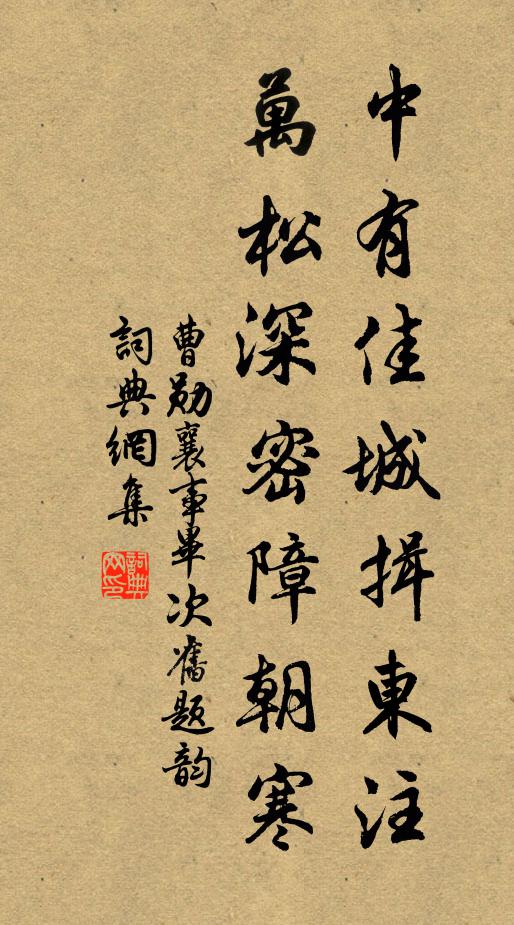 中有佳城揖東注
萬松深密障朝寒
曹勛襄事畢次舊題韵
詞典網集
詞典网印